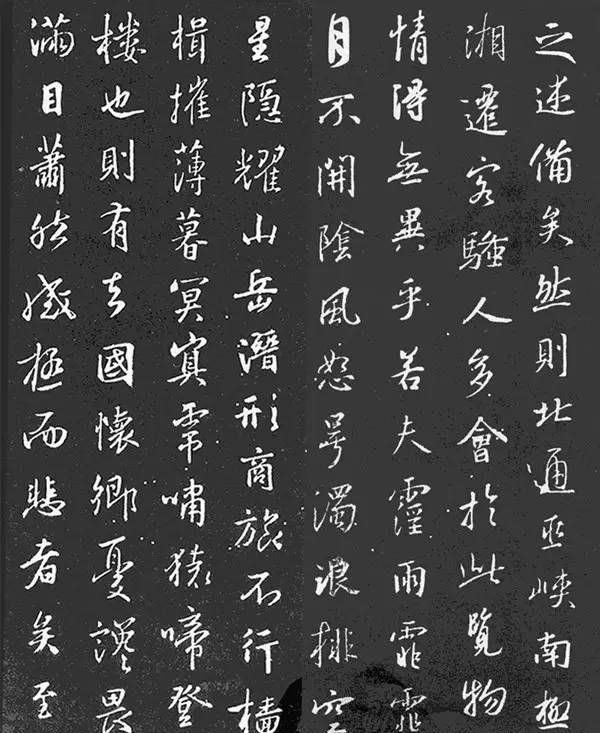 之述備矣然則北通巫峽南極
湘遷客騷人多會於此覽物
情得無異乎若夫霪雨霏霏
月不開陰風怒号濁浪排空
星隱耀山岳潛形商旅不行檣
楫摧薄暮冥冥虎嘯猿啼登
樓也則有去國懷鄉憂讒畏
滿目蕭然感極而悲者矣至